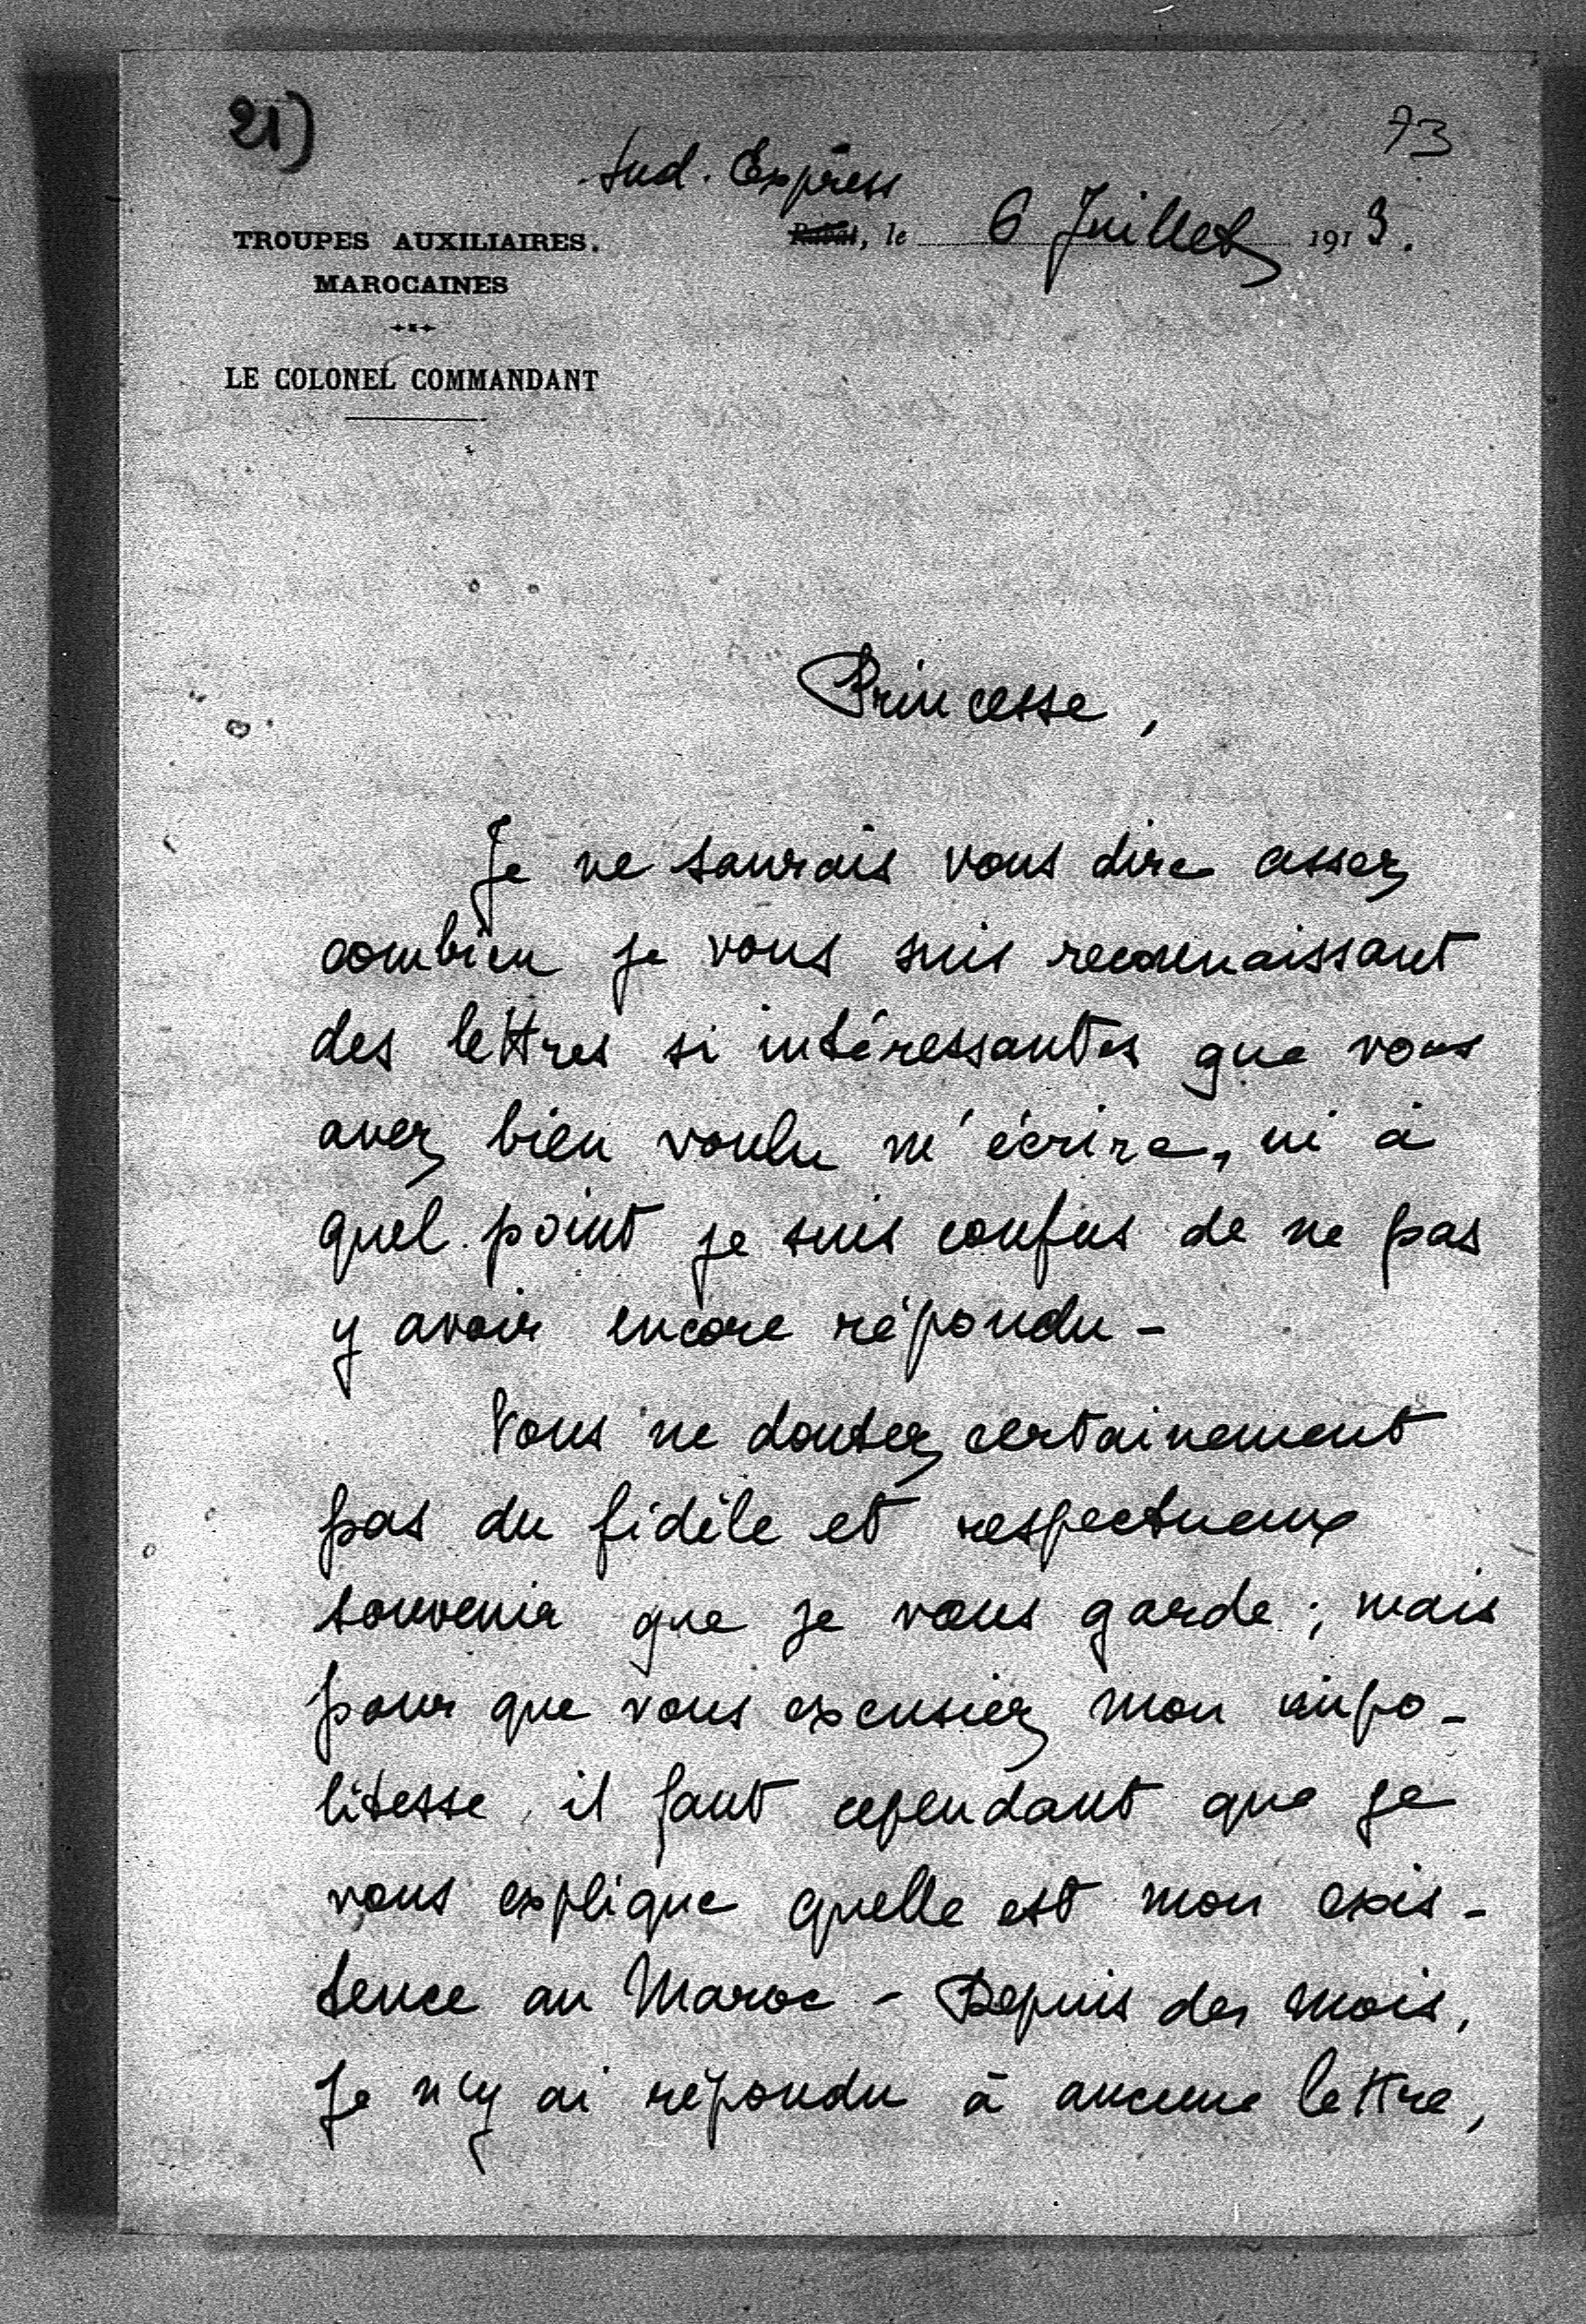 21)
73
Sud. Express
TROUPES AUXILIAIRES.
Rabat, le 6 Juillet 1913.
MAROCAINES
LE COLONEL COMMANDANT
Princesse,
Je ne saurais vous dire assez
combien je vous suis reconnaissant
des lettres si intéressantes que vous
avez bien voulu m'écrire, ni à
quel point je suis confus de ne pas
y avoir encore répondu -
Vous ne doutez certainement
pas du fidèle et respectueux
souvenir que je vous garde ; mais
pour que vous excusiez mon impo-
litesse, il faut cependant que je
vous explique quelle est mon exis-
tence au Maroc - Depuis des mois,
je n'y ai répondu à aucune lettre,